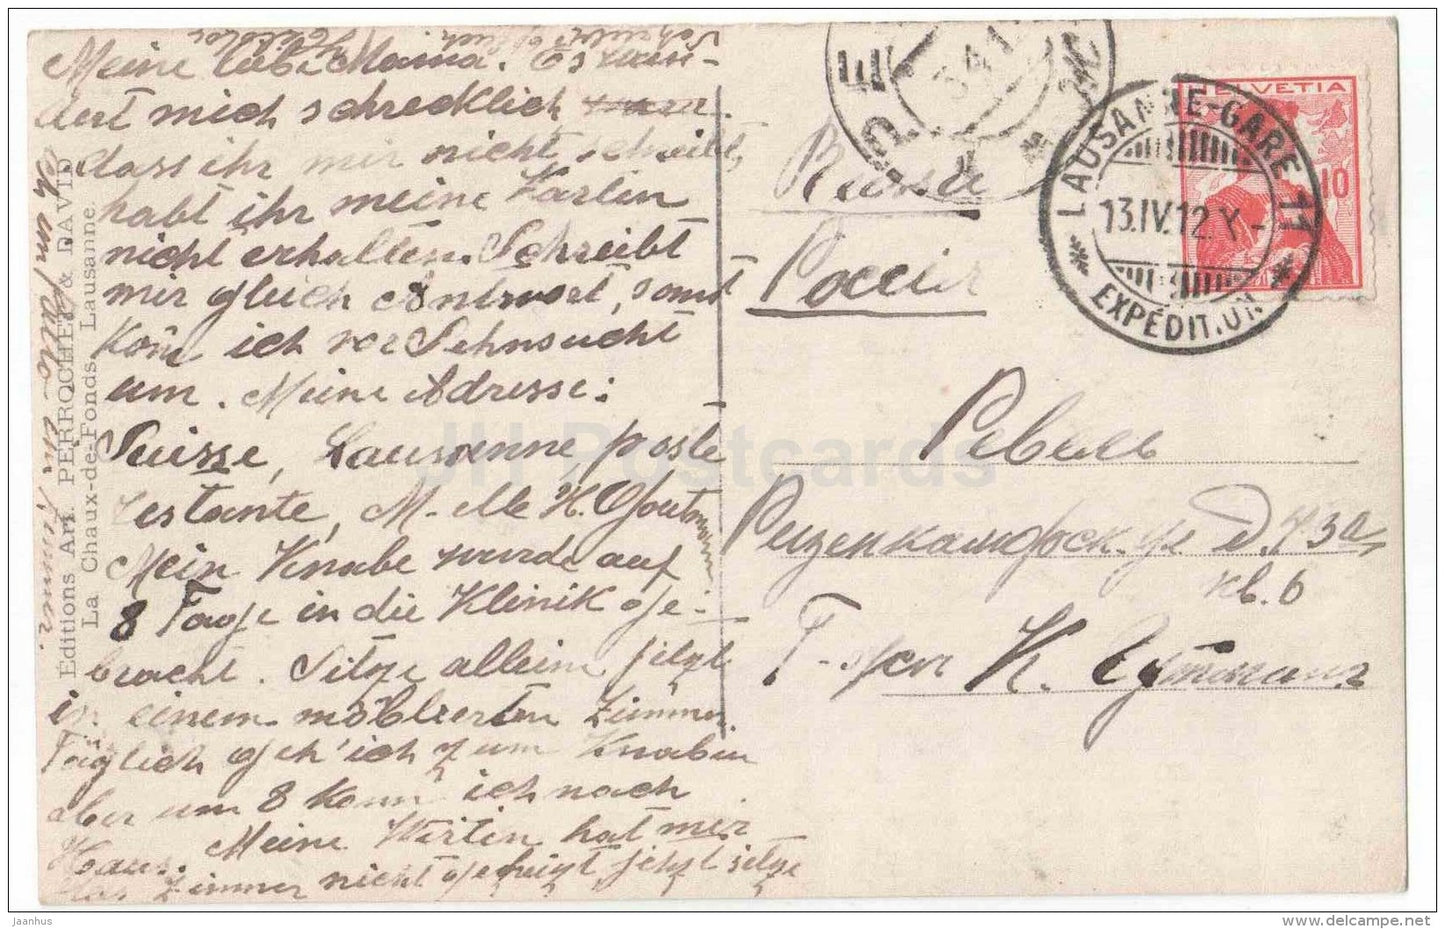 Meine liebe Mama. Es wun-
dert mich schrecklich
dass ihr mir nicht schreibt,
habt ihr meine Karten
nicht erhalten. Schreibt
mir gleich Antwort, sonst
kom̄ ich vor Sehnsucht
um. Meine Adresse:
Suisse, Lausanne, poste
restante, M-elle H. Goutmann
Mein Knabe wurde auf
8 Tage in die Klinik ge-
bracht. Sitze allein jetzt
in einem möblierten Zimmer.
Täglich geh' ich zum Knaben
aber um 8 komm ich nach
Haus. Meine Wirtin hat mir
das Zimmer nicht geheizt, jetzt sitze
ich
Éditions Art. PERROCHET & DAVID
La Chaux-de-Fonds, Lausanne.
РЕВЕЛЬ
Россия
HELVETIA
10
LAUSANNE-GARE 11
13.IV.12.X-
EXPÉDIT.ON
Ревель
Ризенкампфск. ул д. 73а,
кв. 6
Г-жѣ К. Гутманъ
JH Postcards
jaanhus
www.delcampe.net